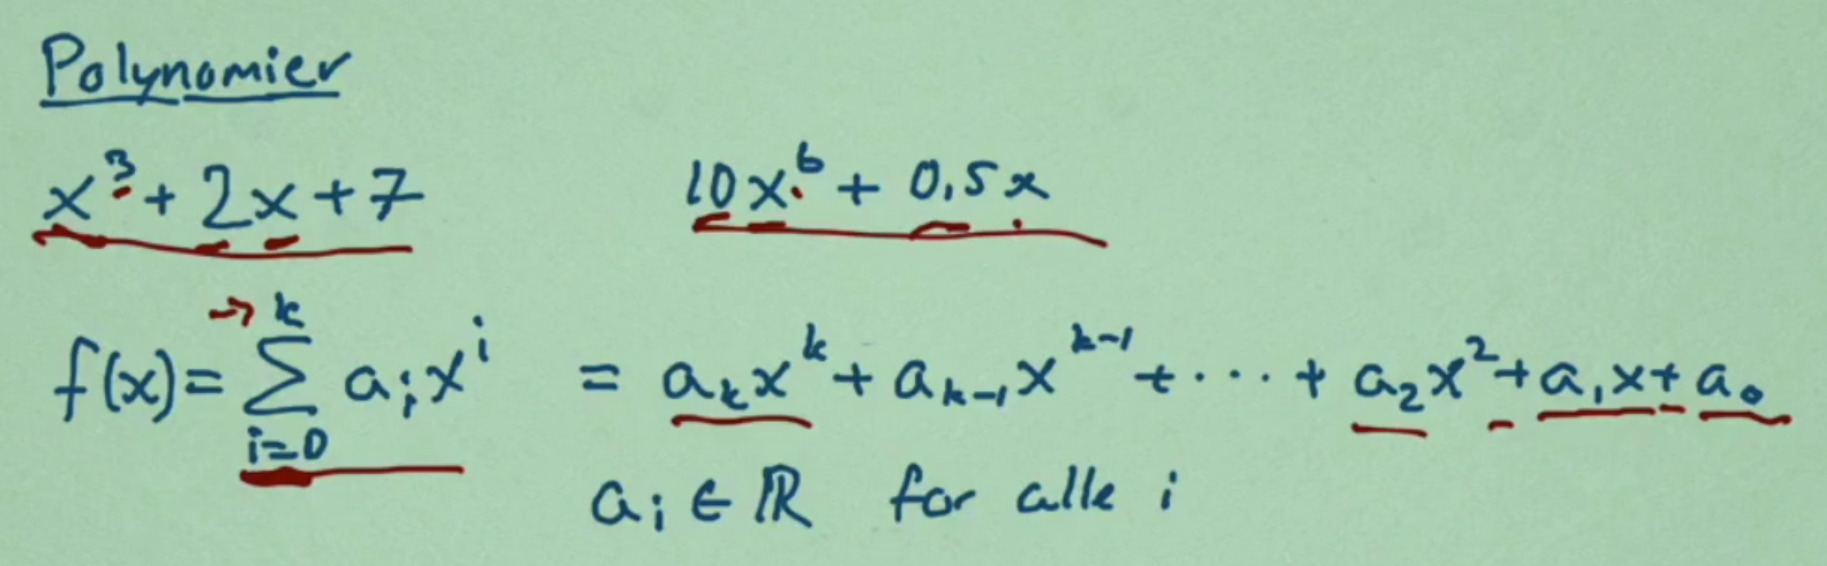 Polynomier
x³ + 2x + 7 10x⁶ + 0,5x
f(x) = ∑_{i=0}^{k} a_i x^i = a_k x^k + a_{k-1} x^{k-1} + ··· + a_2 x² + a_1 x + a_0
a_i ∈ ℝ for alle i